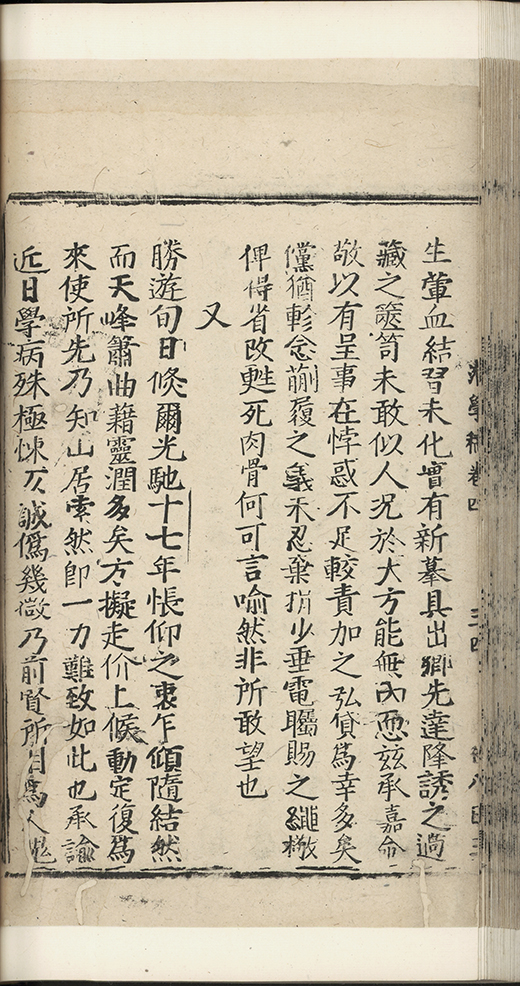 生葷血結習未化實有新摹具出鄉先達隆誘之過
藏之篋笥未敢似人況於大方能無內恧玆承嘉命
敬以有呈事在悖惑不足較責加之弘貸為幸多矣
儻猶軫念蒯履之義不忍棄捐少垂電矚賜之繩檄
俾得省改甦死肉骨何可言喻然非所敢望也
又
勝遊旬日倏爾光馳十七年悵仰之衷乍傾隨結然
而天峰蕭曲藉靈潤多矣方擬走价上候動定復為
來使所先乃知山居索然即一力難致如此也承諭
近日學病殊極悚仄誠偽幾微乃前賢所目為人鬼